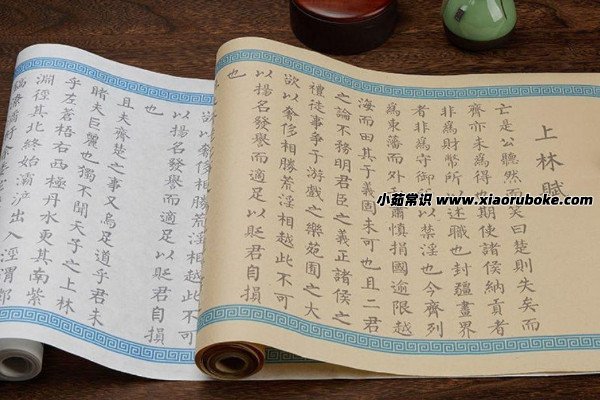 上林賦
亡是公聽然而笑曰楚則失矣而
齊亦未為得也使諸侯納貢者
非為財幣所以述職也封疆畫界
者非為守御所以禁淫也今齊列
為東藩而外肅慎捐國逾限越
海而田其于義固未可也且二君
之論不務明君臣之義正諸侯之
禮徒事爭于游戲之樂苑囿之大
欲以奢侈相勝荒淫相越此不可
以揚名發譽而適足以貶君自損
也
欲以奢侈相勝荒淫相越此不可
以揚名發譽而適足以貶君自損
也
且夫齊楚之事又烏足道乎君未
睹夫巨麗也獨不聞天子之上林
乎左蒼梧右西極丹水更其南紫
淵徑其北終始灞滻出入涇渭酆
小茹常识 www.xiaoruboke.com